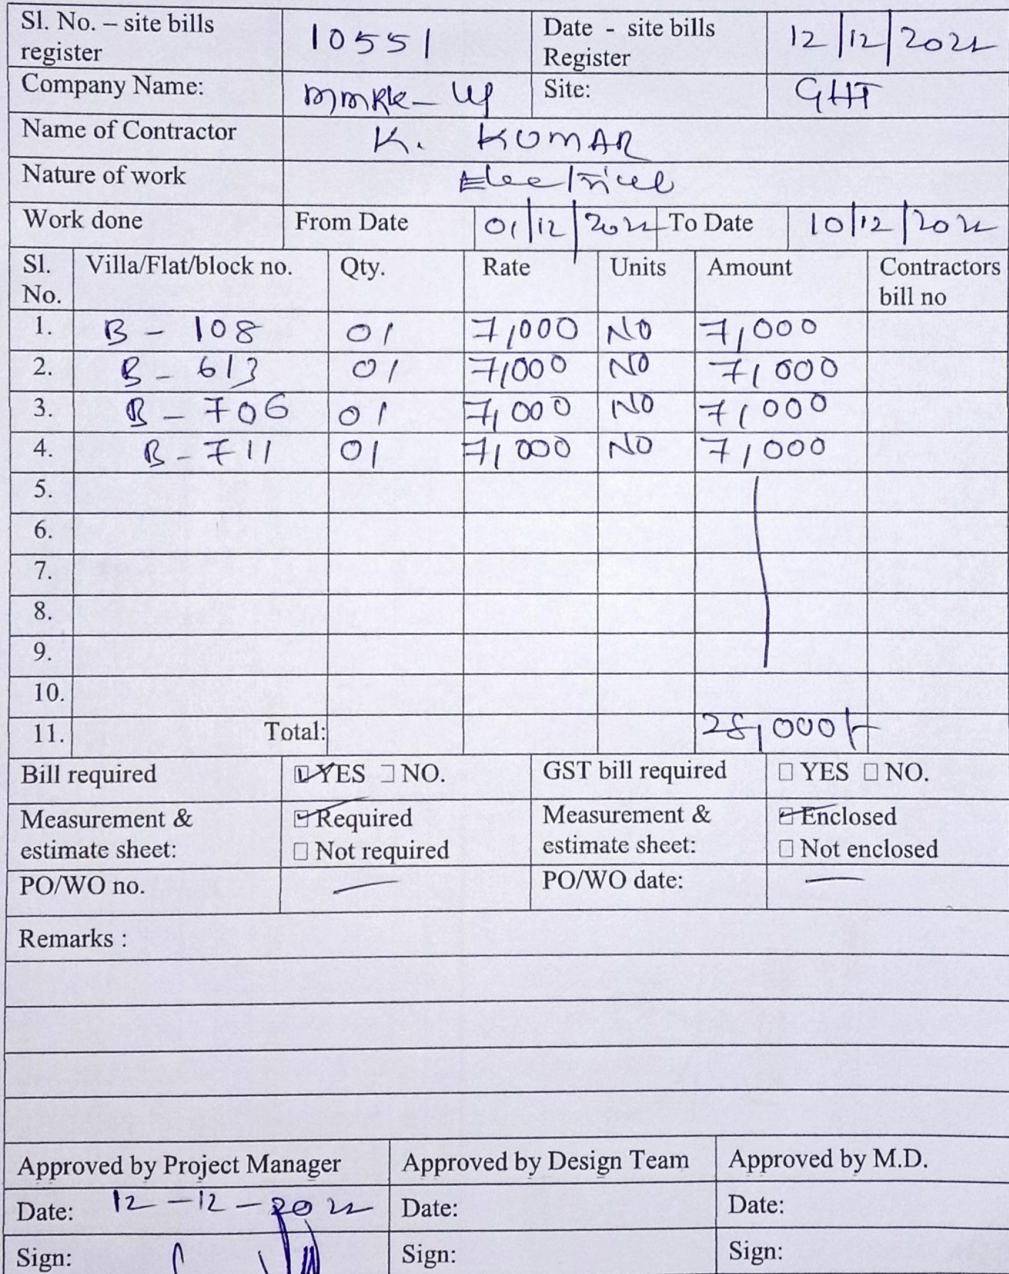 Sl. No. – site bills register 10551 Date - site bills Register 12/12/2022
Company Name: Site: GHT
Name of Contractor K. KUMAR
Nature of work Electrical
Work done From Date 01/12/2022 To Date 10/12/2022
Sl. No. Villa/Flat/block no. Qty. Rate Units Amount Contractors bill no
1. B - 108 01 7,000 NO 7,000
2. B - 613 01 7,000 NO 7,000
3. B - 706 01 7,000 NO 7,000
4. B - 711 01 7,000 NO 7,000
5.
6.
7.
8.
9.
10.
11. Total: 28,000/-
Bill required ☑ YES ☐ NO. GST bill required ☐ YES ☐ NO.
Measurement & estimate sheet: ☑ Required ☐ Not required Measurement & estimate sheet: ☑ Enclosed ☐ Not enclosed
PO/WO no. — PO/WO date: —
Remarks :
Approved by Project Manager Approved by Design Team Approved by M.D.
Date: 12-12-2022 Date: Date:
Sign: Sign: Sign: